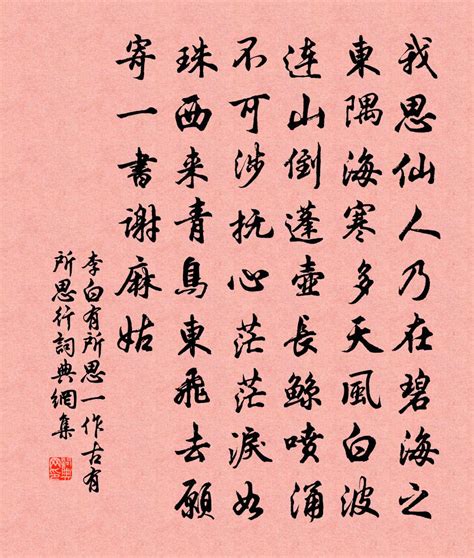 我思仙人乃在碧海之
東隅海寒多天風白波
連山倒蓬壺長鲸喷涌
不可涉抚心茫茫淚如
珠西来青鳥東飛去願
寄一書谢麻姑
李白有所思一作古有
所思行词典網集